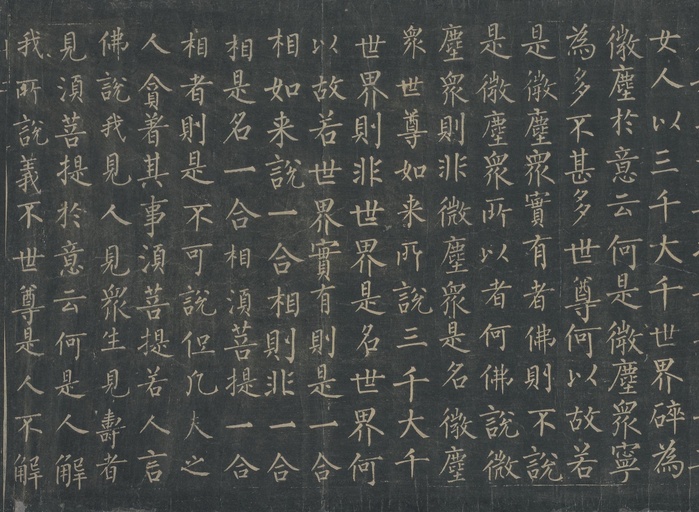 女人以三千大千世界碎為
微塵於意云何是微塵眾寧
為多不甚多世尊何以故若
是微塵眾實有者佛則不說
是微塵眾所以者何佛說微
塵眾則非微塵眾是名微塵
眾世尊如来所說三千大千
世界則非世界是名世界何
以故若世界實有則是一合
相如来說一合相則非一合
相是名一合相須菩提一合
相者則是不可說但凡夫之
人貪著其事須菩提若人言
佛說我見人見眾生見壽者
見須菩提於意云何是人解
我所說義不世尊是人不解